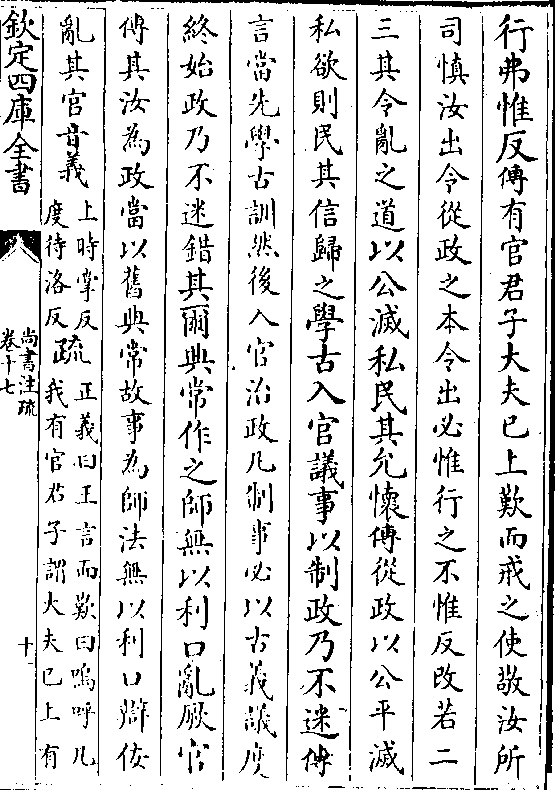 行弗惟反傳有官君子大夫已上歎而戒之使敬汝所
司慎汝出令從政之本令出必惟行之不惟反改若二
三其令亂之道以公滅私民其允懷傳從政以公平滅
私欲則民其信歸之學古入官議事以制政乃不迷傳
言當先學古訓然後入官治政凡制事必以古義議度
終始政乃不迷錯其爾典常作之師無以利口亂厥官
傳其汝為政當以舊典常故事為師法無以利口辯佞
亂其官音義上時掌反
度待洛反疏正義曰王言而歎曰嗚呼凡
我有官君子謂大夫已上有
欽定四庫全書
尚書注疏
卷十七
十